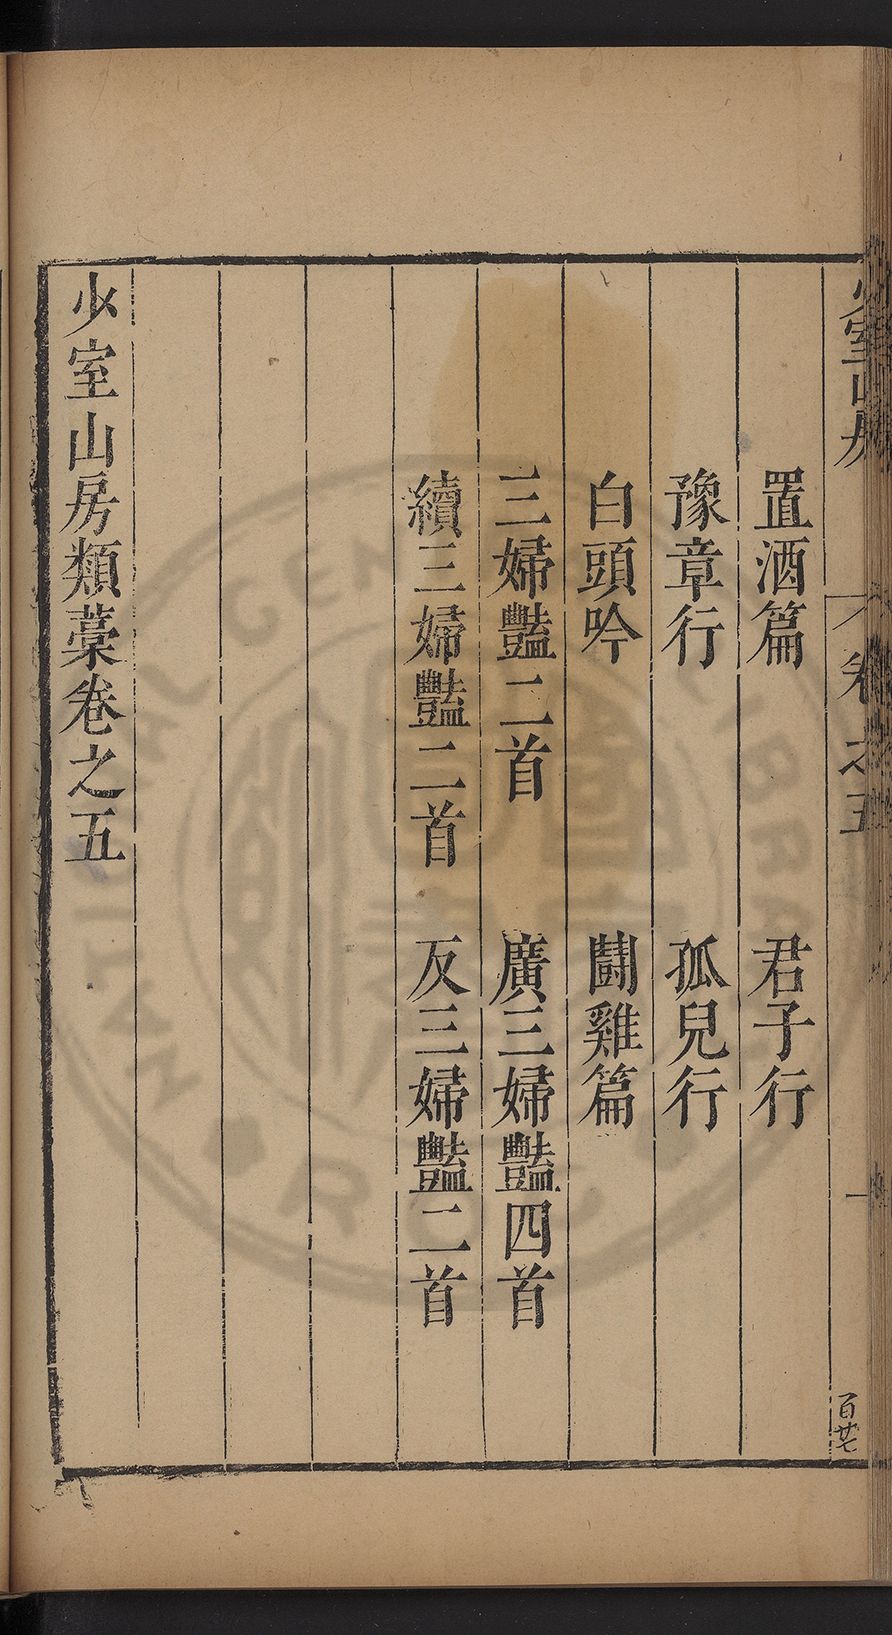 置酒篇　君子行
豫章行　孤兒行
白頭吟　鬪雞篇
三婦豔二首　廣三婦豔四首
續三婦豔二首　反三婦豔二首
少室山房類藁卷之五
少室山房　卷之五　一
百廿七